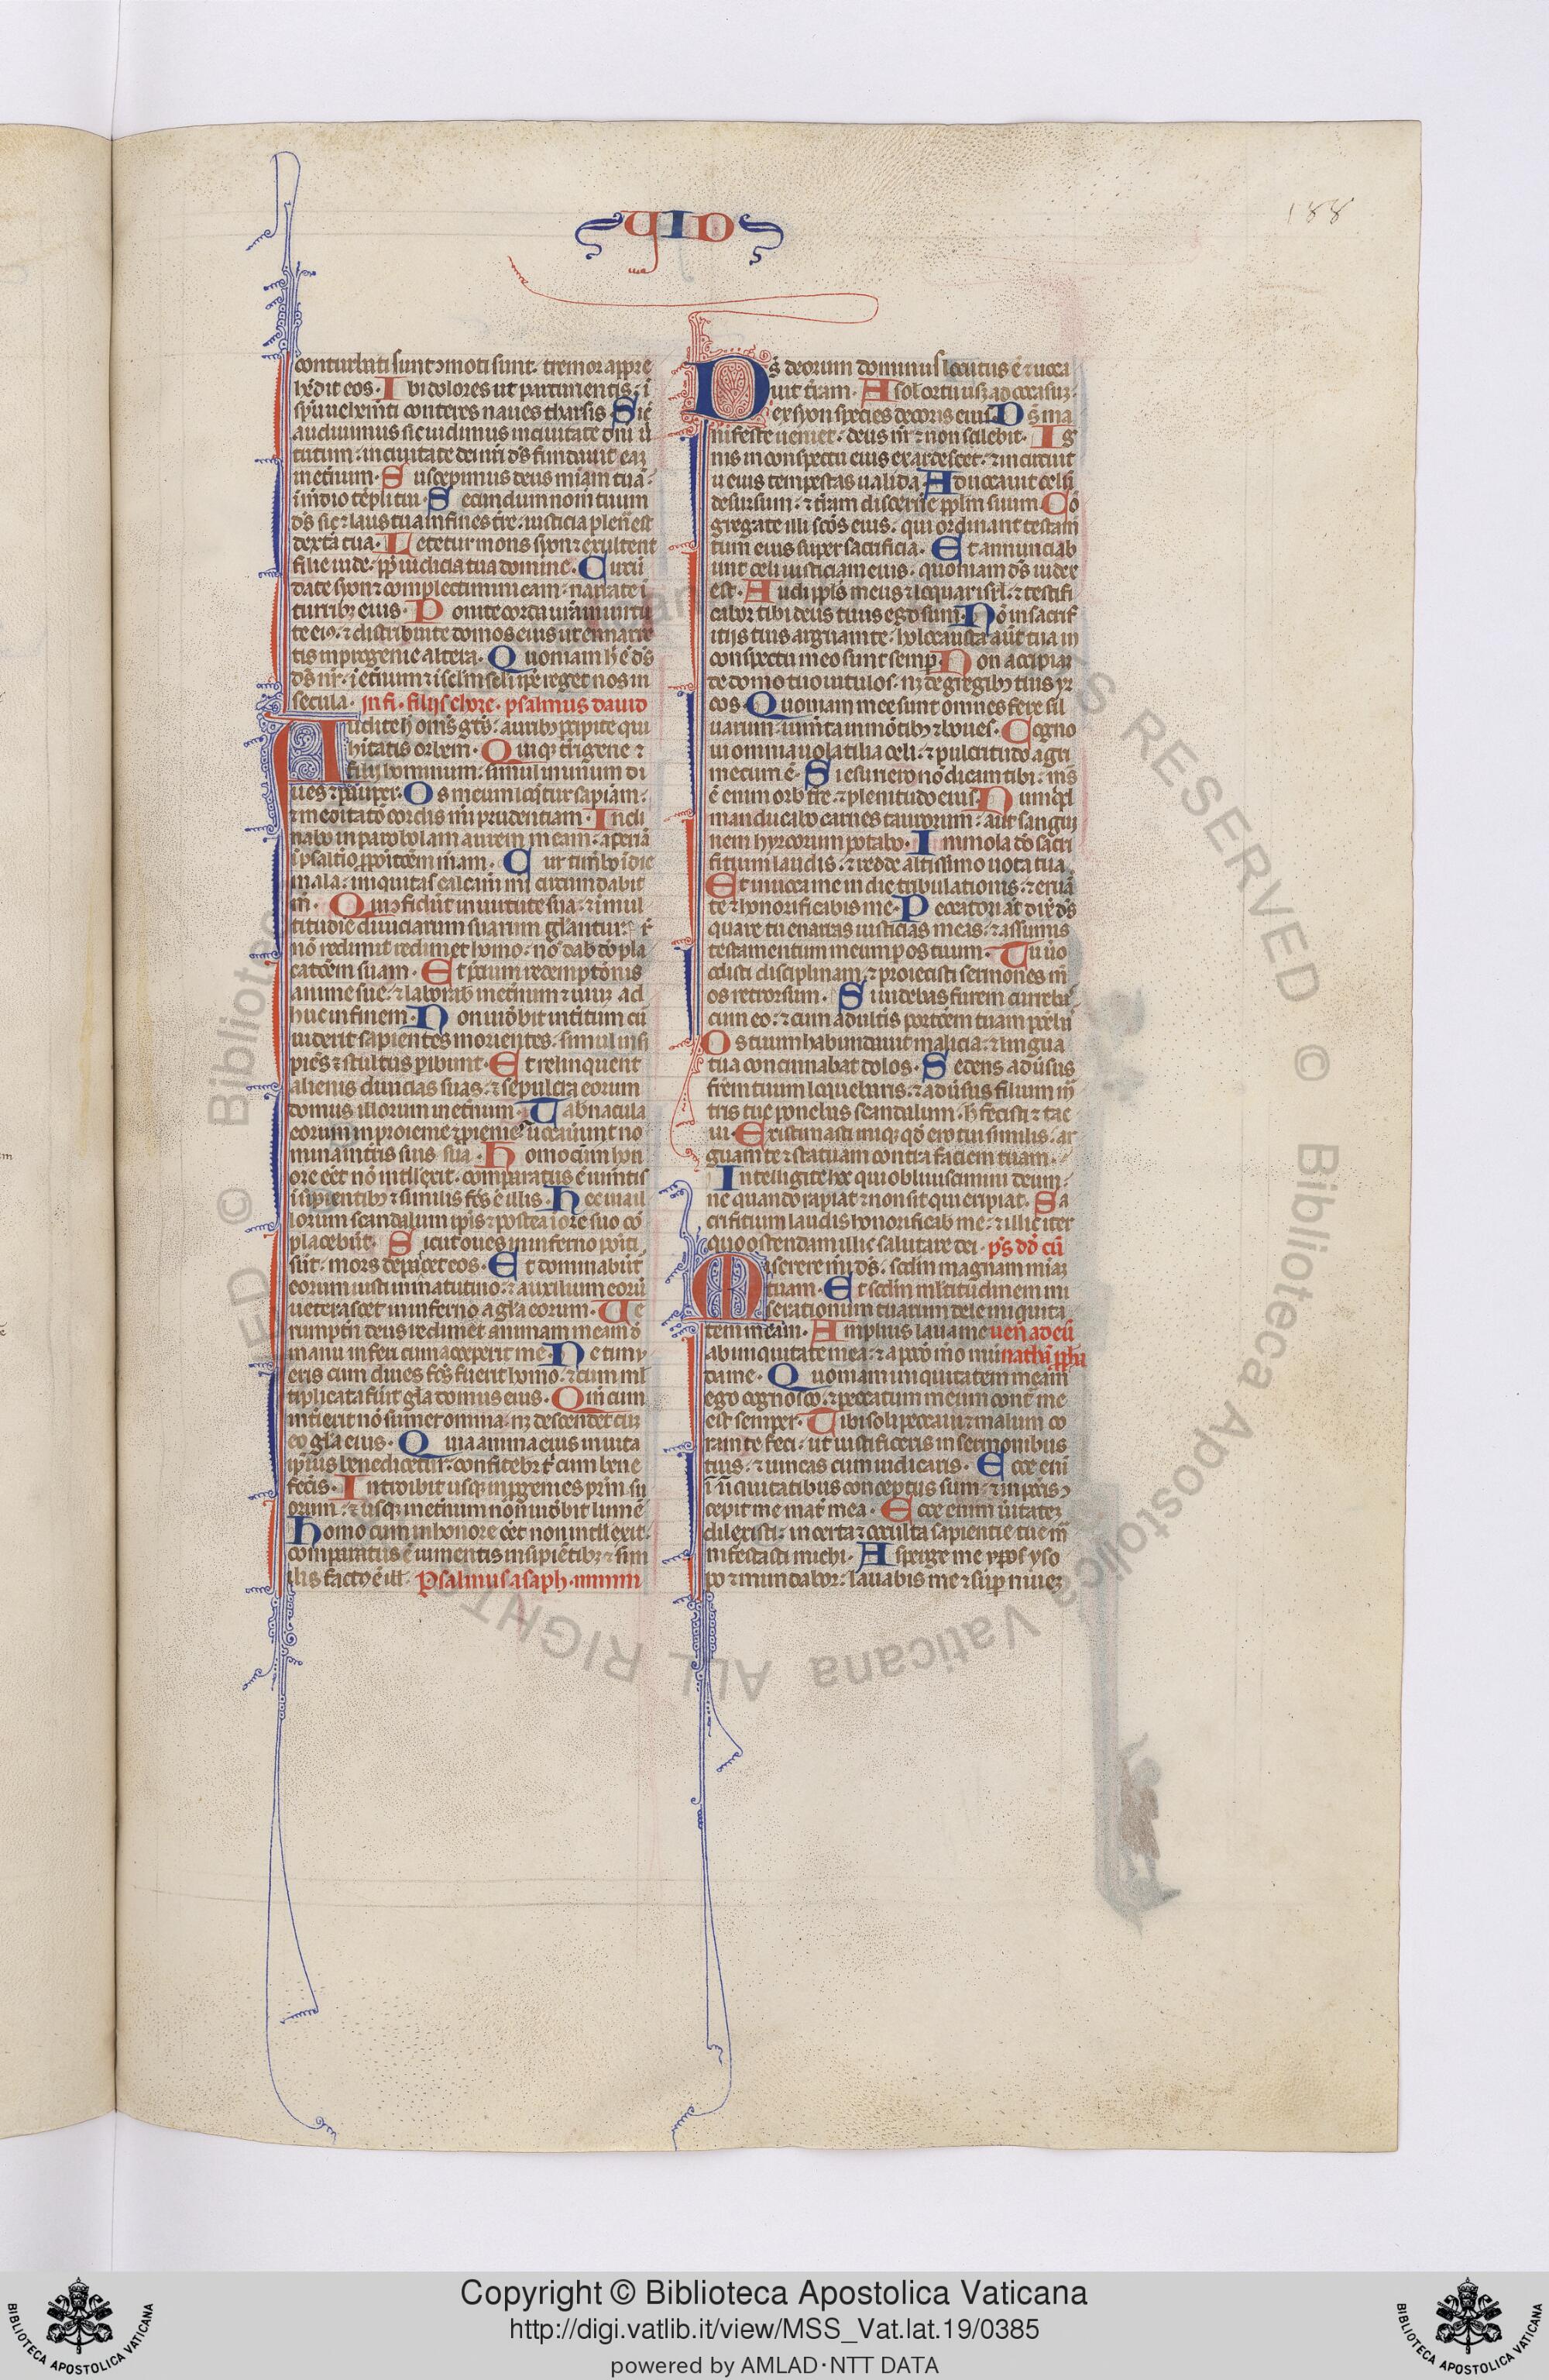 188
VID
conturbati sunt ɔmoti sunt. tremor appre
hēdit eos. Ibi dolores ut parturientis. ī
sp̄u uehem̄ti conteres naues tharsis. Sic̄
audiuimus sic uidimus in ciuitate dn̄i ū
tutum. in ciuitate dei nr̄i ds̄ fundauit eaꝫ
in et̄num. Suscepimus deus mīam tuā.
ī mēdio tēpli tui. Secundum nom̄ tuum
ds̄ sic ⁊ laus tua in fines tr̄e. iusticia plen̄ est
dextra tua. Letetur mons syon ⁊ exultent
filie iude. pp̄ iudicia tua domine. Circū
date syon ⁊ complectimini eam. narrate ī
turribꝫ eius. Ponite corda ur̄a in uirtu
te eiꝰ. ⁊ distribuite domos eius ut enarre
tis in progenie altera. Quoniam h̄ ē ds̄
ds̄ nr̄. ī et̄num ⁊ ī sel̄m sel̄i ip̄e reget nos in
secula. In fi. filijs chore. psalmus dauid
Audite h̄ om̄s gēs. auribꝫ ꝑcipite qui
hītatis orbem. Quiqꝫ t̄rigene ⁊
filij hominum. simul in unum di
ues ⁊ pauper. Os meum loq̄tur sapiām.
⁊ meditatō cordis mī prudentiam. Incli
nabo in parabolam aurem meam. aperiā
ī psalt̄io ꝓpōitōem m̄am. Cur tim̄bo ī die
mala. iniquitas calcan̄i mī circumdabit
m̄. Qui ɔfidūt in uirtute sua. ⁊ ī mul
titudīe diuiciarum suarum gl̄antur. Fr̄
nō redimit redimet homo. nō dab̄ dō pla
catōem suam. Et p̄cium redemptōnis
anime sue. ⁊ laborab̄ in et̄num ⁊ uiuꝫ ad
huc in finem. Non uidebit int̄itum cū
uiderit sapientes morientes. simul insi
piēs ⁊ stultus ꝑibunt. Et relinquent
alienis diuicias suas. ⁊ sepulcra eorum
domus illorum in et̄num. Tab̄nacula
eorum in proienie ⁊ ꝓienie. uocauerunt no
mina in t̄ris suis sua. Homo cum hon
ore eēt nō intll̄exit. comparatus ē iumētis
īsipientibꝫ ⁊ similis fcs̄ ē illis. Hec uia il
lorum scandalum ip̄is ⁊ postea ī ore suo cō
placebūt. Sicut oues in inferno pōiti
sūt. mors depascet eos. Et dominabūt
eorum iusti in matutino. ⁊ auxilium eorū
ueterascet in inferno a gl̄a eorum. Ue
rumptn̄ deus redimet animam meam d̄
manu inferi cum acceperit me. Ne timu
eris cum diues fcs̄ fuerit homo. ⁊ cum ml̄
tiplicata fūit gl̄a domus eius. Qm̄ cum
int̄ierit nō sumet omnia. nꝫ descendet cū
eo gl̄a eius. Quia anima eius in uita
ip̄ius benedicetur. confitebr̄ t̄ cum bene
fec̄is. Introibit usqꝫ in ꝓgenies pr̄m su
orum. ⁊ usqꝫ in et̄num nōn uidebit lumē.
Homo cum in honore eēt non intll̄exit.
comparatus ē iumentis insipiētibꝫ ⁊ sim
ilis factꝰ ē ill̄. Psalmus asaph.
Ds̄ deorum dominus locutus ē ⁊ uoca
uit t̄ram. A solis ortu usqꝫ ad occasuꝫ.
ex syon species decoris eius. Ds̄ ma
nifeste ueniet. deus nr̄ ⁊ non silebit. Ig
nis in conspectu eius exardescet. ⁊ in circuit
u eius tempestas ualida. Aduocauit celū
desursum. ⁊ t̄ram discerne̅ ppl̄m suum. Cō
gregate illi scōs eius. qui ordinant testam̄
tum eius super sacrificia. Et annunciab̄
unt celi iusticiam eius. quoniam ds̄ iudex
est. Audi ppl̄s meus ⁊ loquar isrl̄. ⁊ testifi
cabor tibi deus tuus ego sum. Nō in sacrif
itijs tuis arguam te. holocausta aūt tua in
conspectu meo sunt semꝑ. Non accipiaꝫ
de domo tuo uitulos. nꝫ de gregibꝫ tuis yr
cos. Quoniam mee sunt omnes fere sil
uarum. iumēta in mōtibꝫ ⁊ boues. Cogno
ui omnia uolatilia celi. ⁊ pulcritudo agri
mecum ē. Si esuriero nō dicam tibi. ms̄
ē enim orb̄ tr̄e ⁊ plenitudo eius. Numqͥd
manducabo carnes taurorum. aut sangui
nem hyrcorum potabo. Immola dō sacri
ficium laudis. ⁊ redde altissimo uota tua.
Et inuoca me in die tribulationis. ⁊ eruā
te ⁊ honorificabis me. Peccatori at̄ dix̄ ds̄
quare tu enarras iusticias meas. ⁊ assumis
testamentum meum ꝑ os tuum. Tu ūo
odisti disciplinam. ⁊ proiecisti sermones m̄
os retrorsum. Si uidebas furem currebaˢ
cum eo. ⁊ cum adultis portōem tuam poneb̄
Os tuum habundauit malicia. ⁊ lingua
tua concinnabat dolos. Sedens adūsus
fr̄em tuum loquebaris. ⁊ adūsus filium m̄
tris tue ponebas scandalum. h̄ fecisti ⁊ tac
ui. Existimasti iniqꝫ qͩ ero tui similis. ar
guam te ⁊ statuam contra faciem tuam.
Intelligite hec qui obliuiscimini deum.
ne quando rapiat ⁊ non sit qui eripiat. Sa
crificium laudis honorificab̄ me. ⁊ illic iter
quo ostendam illic salutare dei. ps̄ dd̄ cū
Miserere mī ds̄. scdm̄ magnam miaꝫ
tuam. Et scdm̄ ml̄titudinem mi
serationum tuarum dele iniquita
tem meam. Amplius laua me uen̄ ad eū
ab iniquitate mea. ⁊ a peccō m̄o mū nathā ꝓph̄
da me. Quoniam iniquitatem meam
ego cognosco. ⁊ peccatum meum cont̄ me
est semper. Tibi soli peccaui ⁊ malum co
ram te feci. ut iustificeris in sermonibus
tuis. ⁊ uincas cum iudicaris. Ecce enī
ī iniquitatibus conceptus sum. ⁊ in pccīs ɔ
cepit me mat̄ mea. Ecce enim ūitateꝫ
dilexisti. incerta ⁊ occulta sapientie tue m̄
nifestasti michi. Asperge me ysopo
po ⁊ mundabor. lauabis me ⁊ suꝑ niueꝫ
Copyright © Biblioteca Apostolica Vaticana
http://digi.vatlib.it/view/MSS_Vat.lat.19/0385
powered by AMLAD·NTT DATA
BIBLIOTECA APOSTOLICA VATICANA
BIBLIOTECA APOSTOLICA VATICANA
© Biblioteca Apostolica Vaticana ALL RIGHTS RESERVED